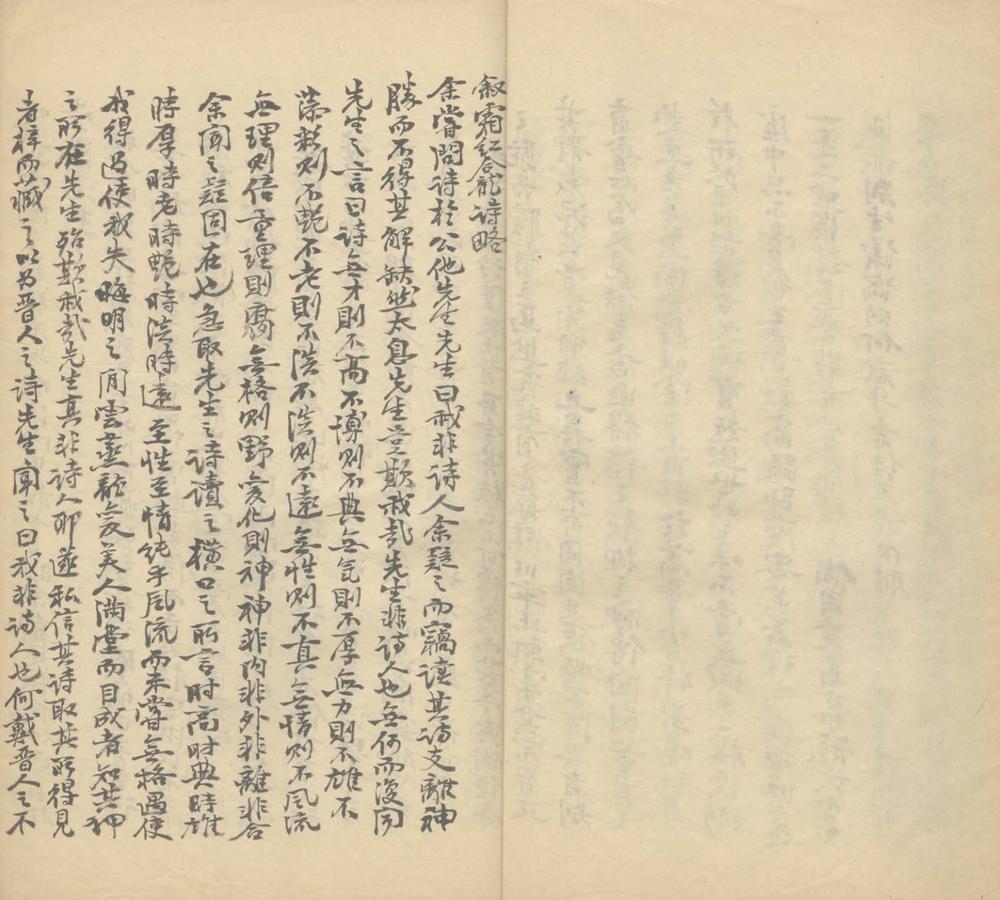 叙霜紅龕詩略
余嘗問詩於公他先生先生曰我非詩人余疑之而竊讀其詩支離神
勝而不得其解缺然太息先生豈欺我哉先生非詩人也無何而復聞
先生之言曰詩無才則不高不博則不典無氣則不厚無力則不雄不
藻彩則不艷不老則不浩不浩則不遠無性則不真無情則不風流
無理則倍重理則腐無格則野變化則神神非內非外非離非合
余聞之疑固在也急取先生之詩讀之橫口之所言时高时典時雄
時厚時老時艷時浩時遠至性至情純乎風流而来嘗無格遇使
我得遇使我失晦明之閒雲蒸龍變美人滿堂而目成者知其神
之所在先生殆欺我哉先生真非詩人耶遂私信其詩取其所得見
者梓而藏之以为晋人之詩先生聞之曰我非詩人也何戴晋人之不